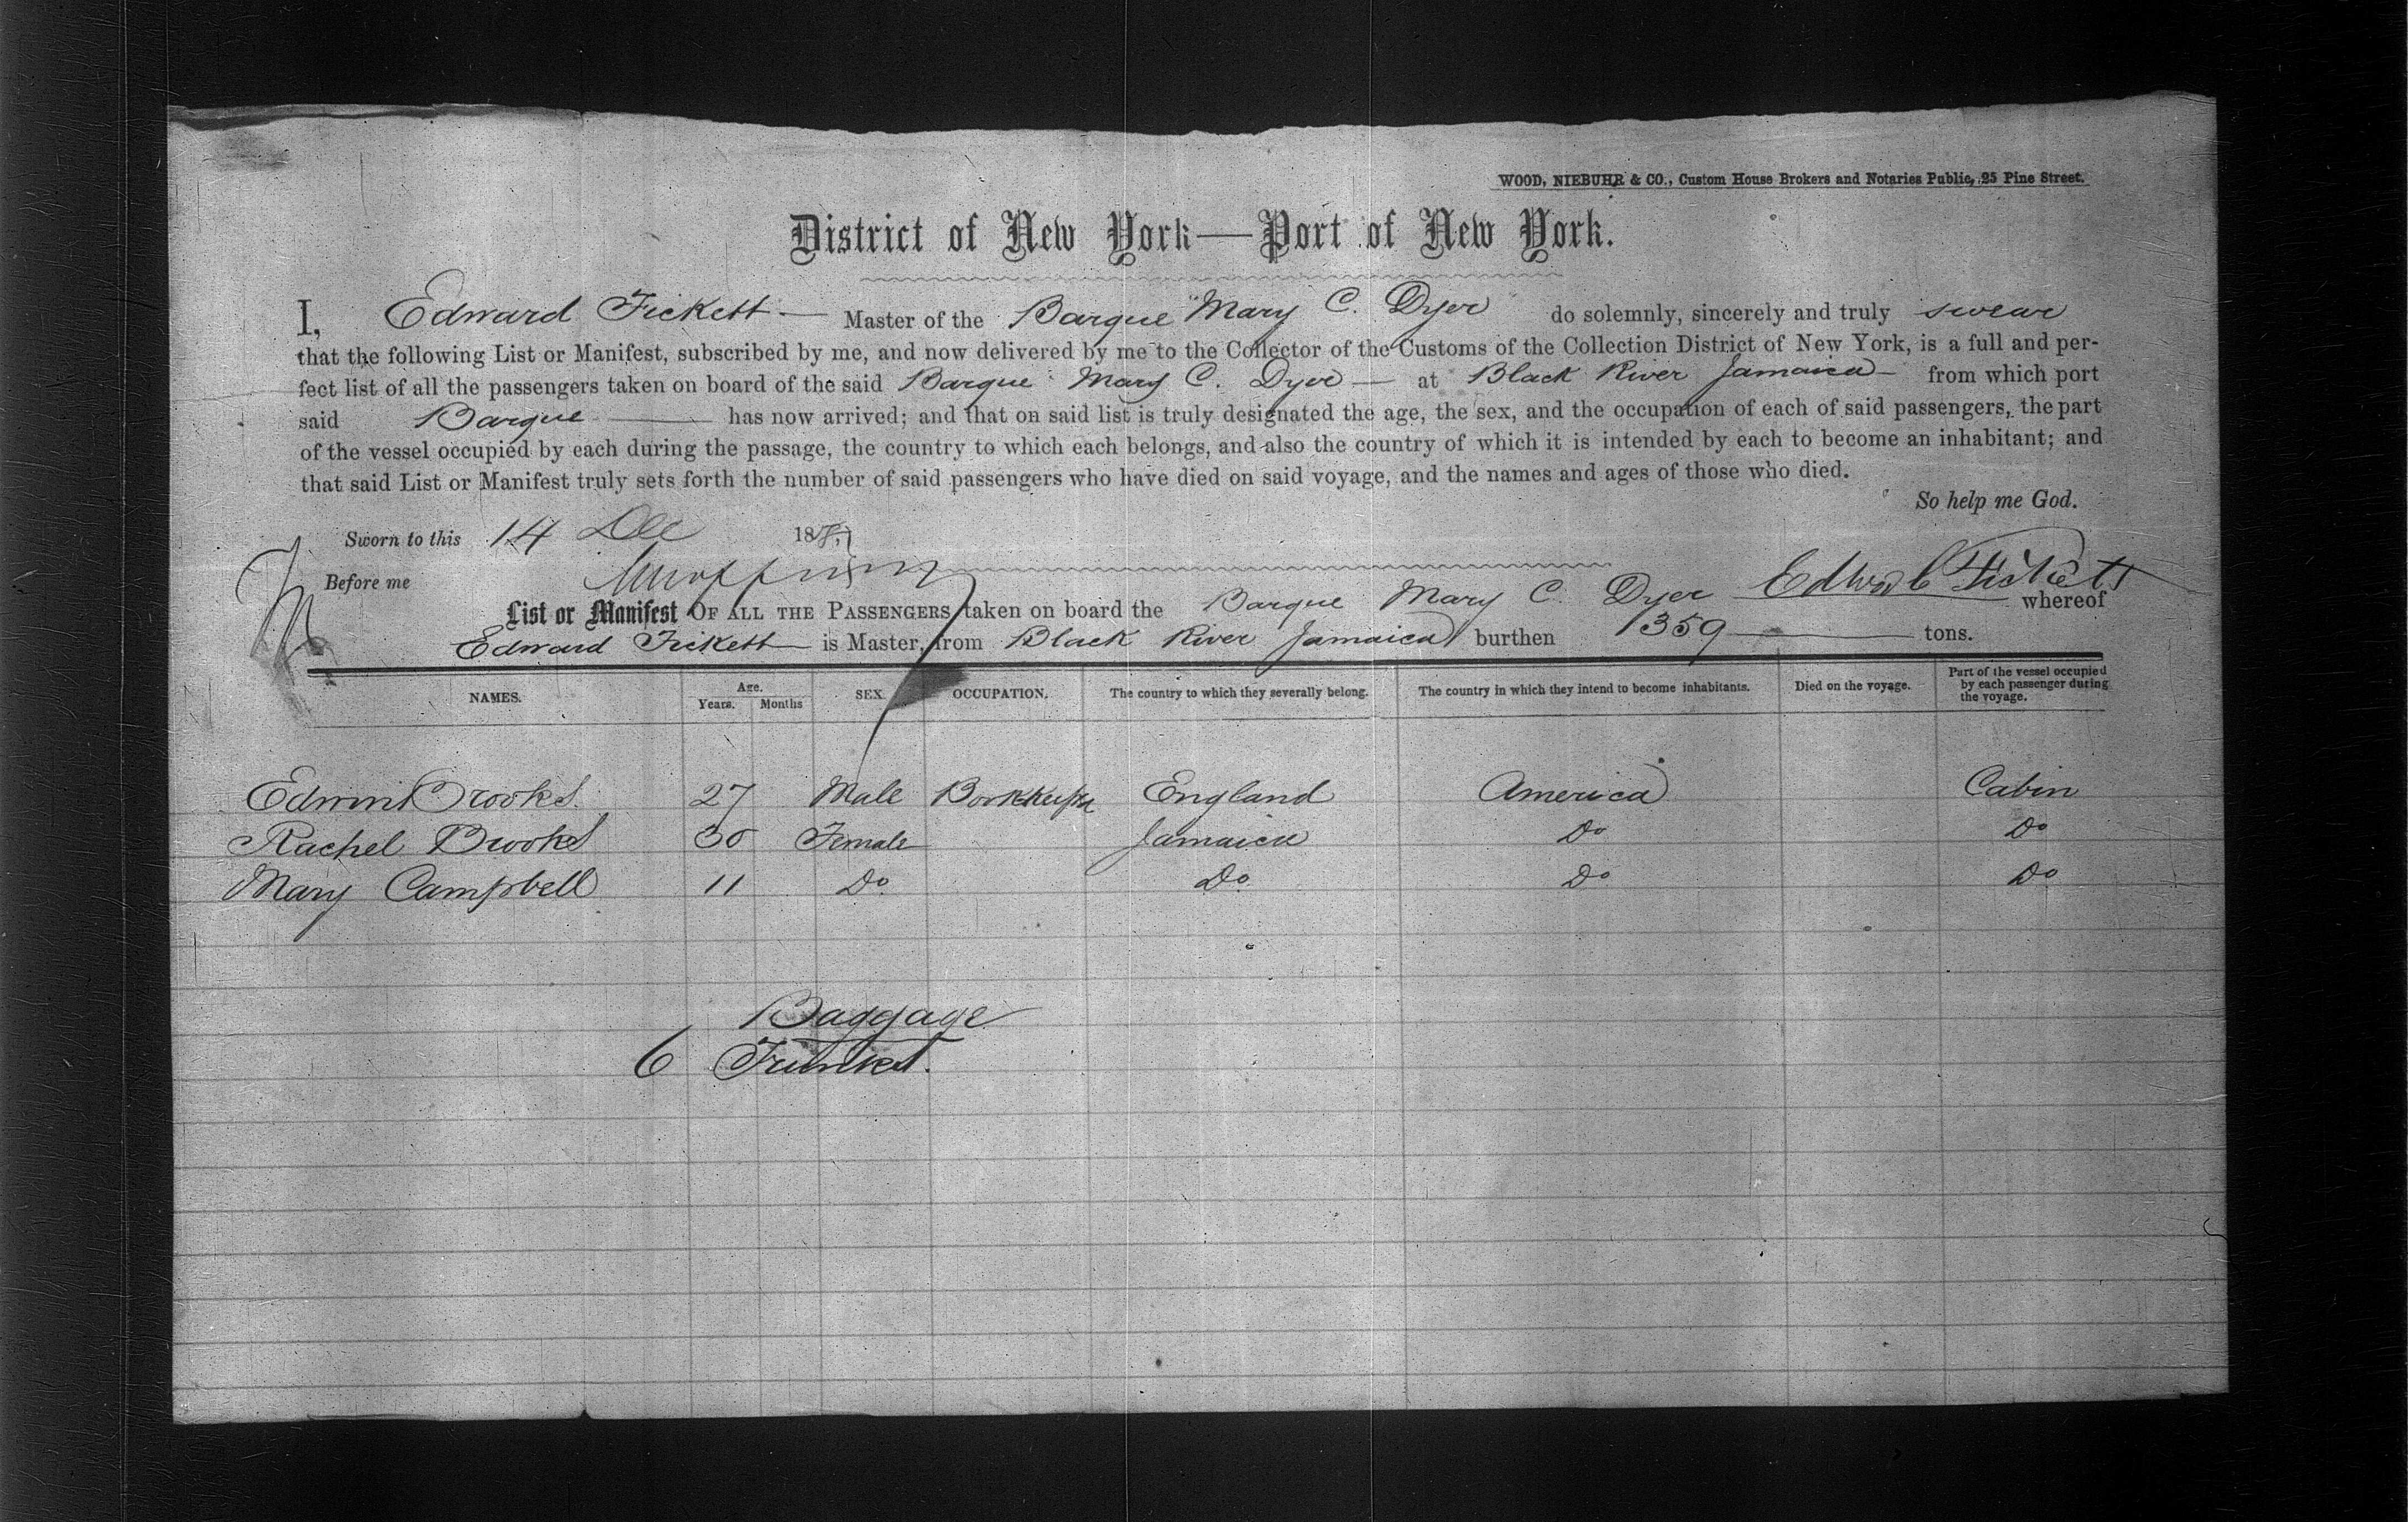 WOOD, NIEBUHR & CO., Custom House Brokers and Notaries Public, 25 Pine Street.
District of New York—Port of New York.
I, Edward Fickett — Master of the Barque "Mary C. Dyer" do solemnly, sincerely and truly swear
that the following List or Manifest, subscribed by me, and now delivered by me to the Collector of the Customs of the Collection District of New York, is a full and per-
fect list of all the passengers taken on board of the said Barque Mary C. Dyer — at Black River Jamaica — from which port
said Barque — has now arrived; and that on said list is truly designated the age, the sex, and the occupation of each of said passengers, the part
of the vessel occupied by each during the passage, the country to which each belongs, and also the country of which it is intended by each to become an inhabitant; and
that said List or Manifest truly sets forth the number of said passengers who have died on said voyage, and the names and ages of those who died.
So help me God.
Sworn to this 14 Dec 18
Before me
List or Manifest OF ALL THE PASSENGERS taken on board the Barque Mary C. Dyer whereof
Edward Fickett — is Master, from Black River Jamaica burthen 359 — tons.
NAMES. Age. Years. Months SEX. OCCUPATION. The country to which they severally belong. The country in which they intend to become inhabitants. Died on the voyage. Part of the vessel occupied by each passenger during the voyage.
Edwin 27 Male Bookkeeper England America Cabin
Rachel Brooks 30 Female Jamaica Do Do
Mary Campbell 11 Do Do Do Do
Baggage
6 Trunks.